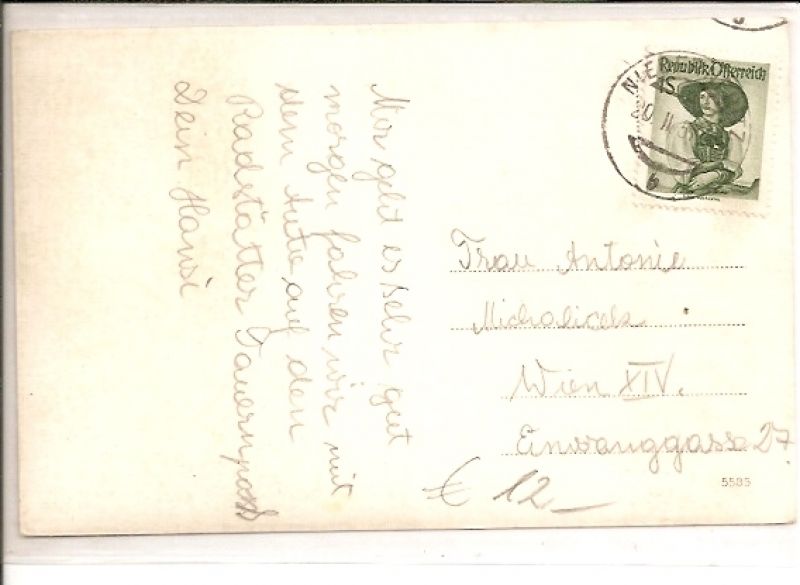 Mir geht es sehr gut
morgen fahren wir mit
dem Auto auf den
Radstätter Tauernpass
Dein Hansi
Republik Österreich
1S
20 II 5
b
Frau Antonie
Wien XIV.
Einwanggasse 27
5585
€ 12_